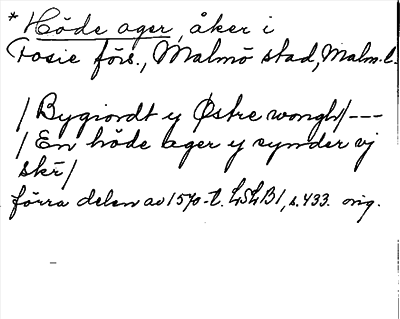 * Höde ager, åker i
Fosie förs., Malmö stad, Malm. l.
/ Bygiordt y Østre wongh / ---
/ En höde ager y synder vj
skr /
förra delen av 1570-t. LSLB 1, s. 433. orig.